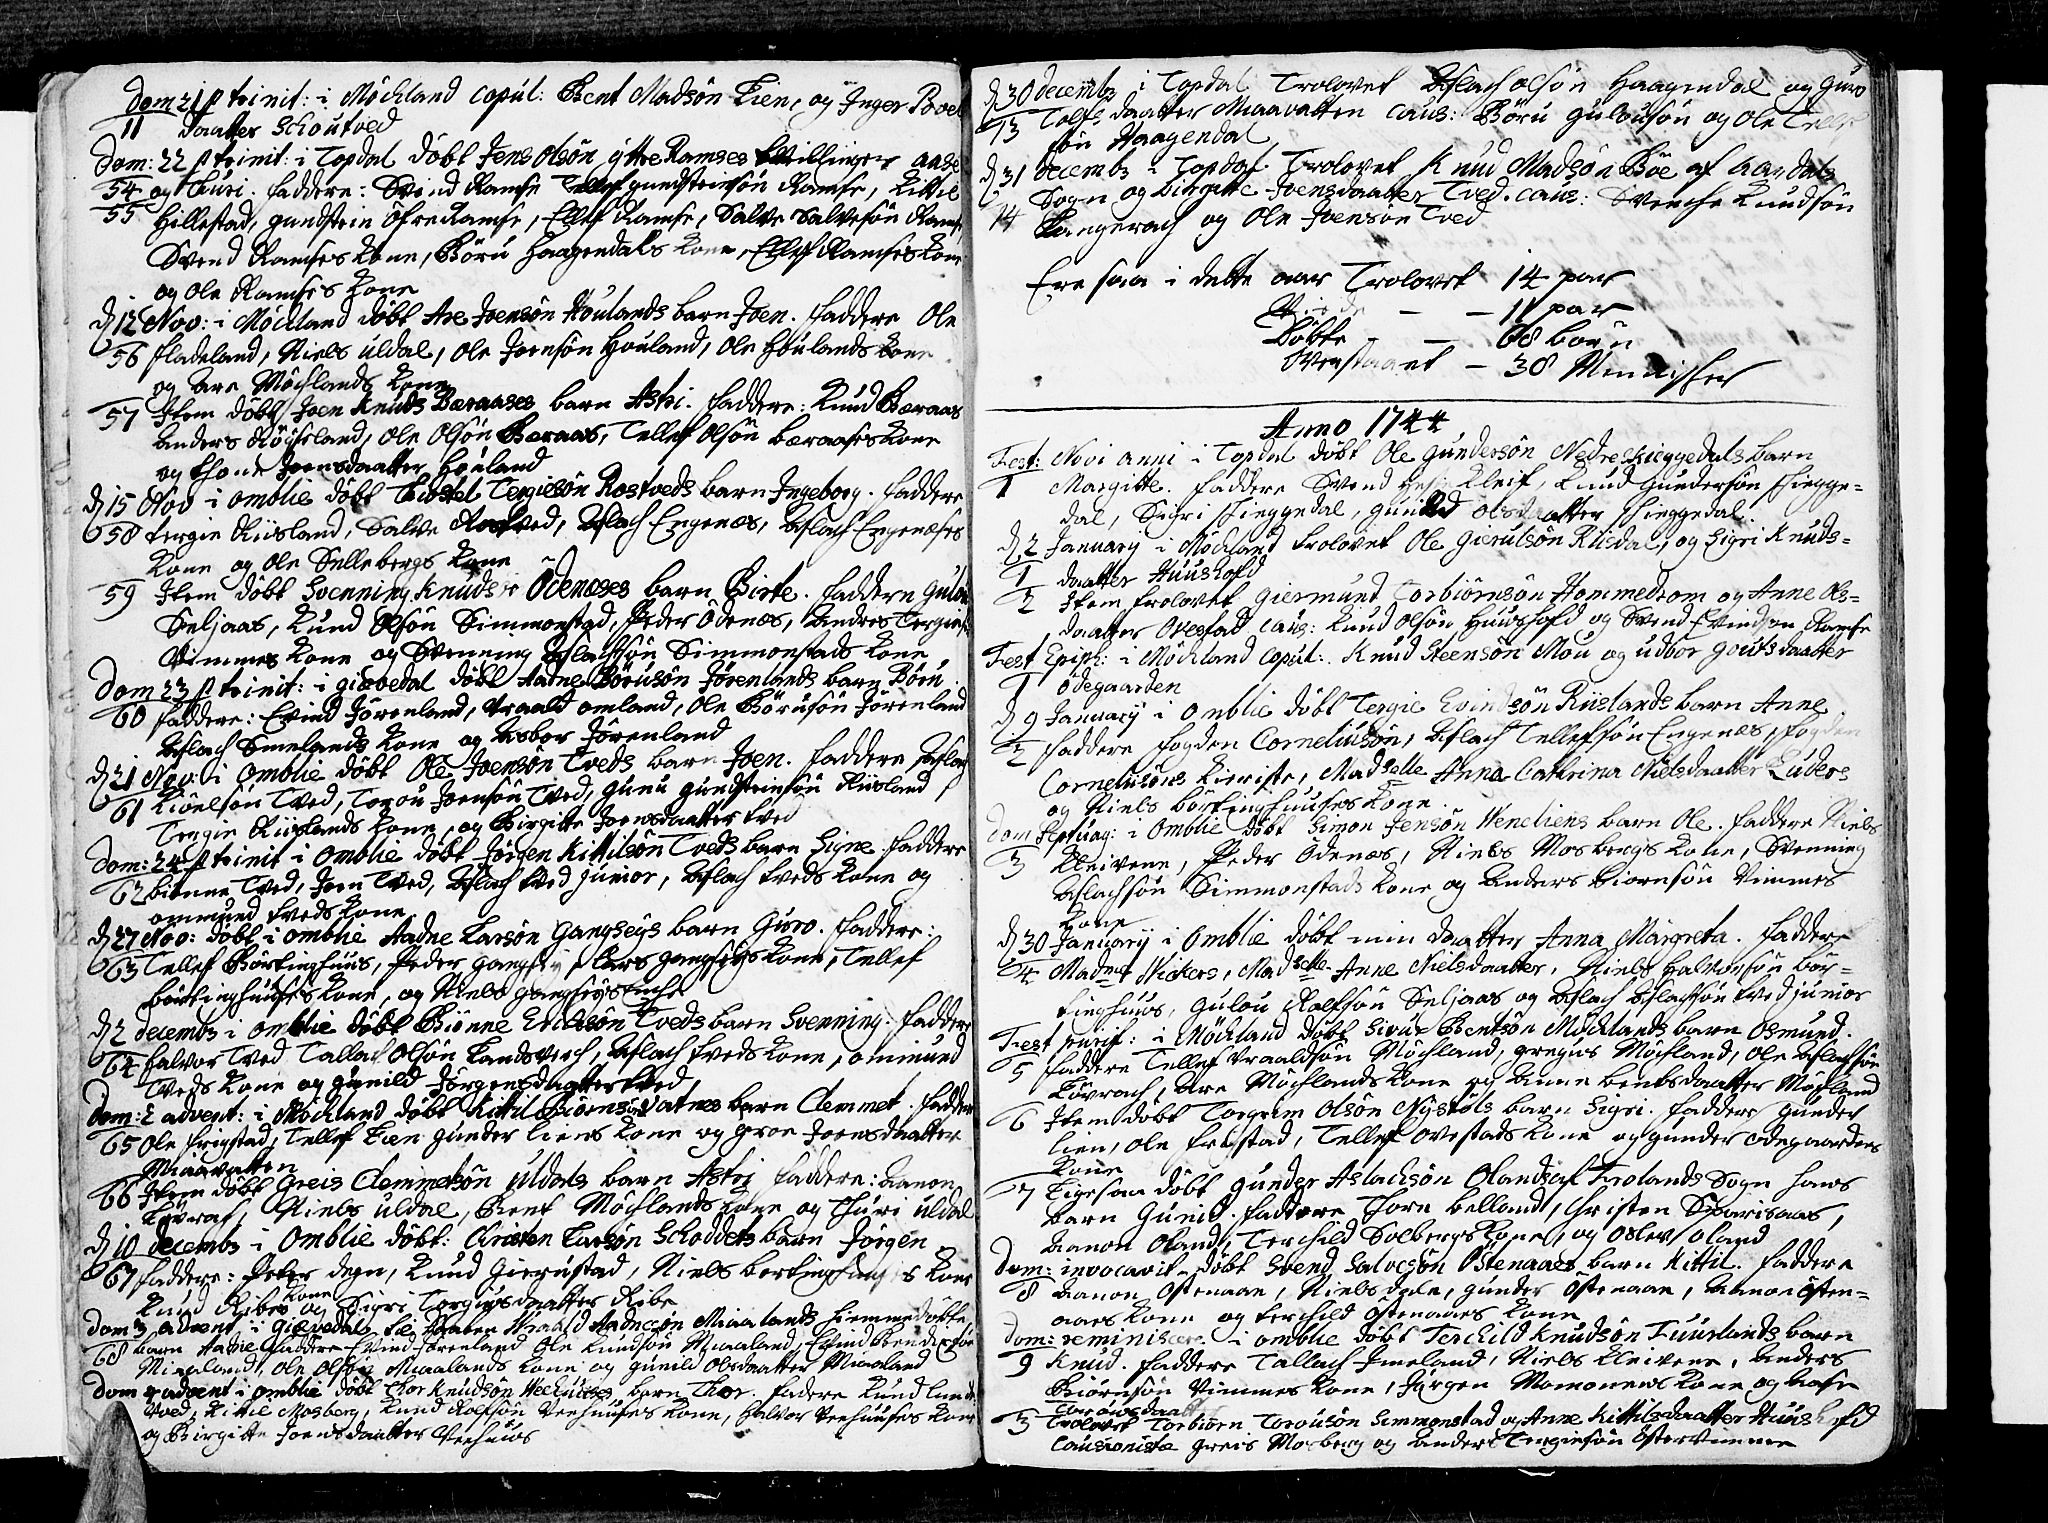 Dom 21 p trinit: i Möckland copul: Bent Madsön Lien, og Inger Povels
11 daatter Schoutved
Dom: 22 p trinit: i Topdal döbt Jens Olsön ÿtre Ramses tvillinger Aase
54 og Thuri. Faddere: Svend Ramse Tellef gundsteinsön Ramse, Kittil
55 Hillestad, gundstein öfre Ramse, Ellef Ramse, Salve Salvesön Ramse,
Svend Ramses Kone, Böru Haagendals Kone, Ellef Ramses Kone
og Ole Ramses Kone
d 12 Nov: i Möckland döbt Are Joensön Houlands barn Joen. Faddere Ole
56 fladeland, Niels uldal, Ole Joensön Houland, Ole Houlands Kone
og Are Möcklands Kone
57 Item döbt Joen Knuds Beraases barn Astri. Faddere: Knud Beraas
Anders Röÿseland, Ole Olsön Beraas, Tellef Olsön Beraases Kone
og Thone Joensdaatter Houland
d 15 Nov i Omblie döbt Torstel Tergiesön Rostveds barn Ingeborg. Faddere
58 Tergie Riisland, Salve Rostved, Aslach Engenæs, Aslach Engenæses
Kone og Ole Sellebergs Kone
59 Item döbt Svenning Knudsön Ödenæses barn Birte. Faddere Gulou
Seljaas, Knud Olsön Simmonstad, Peder Ödenæs, Andres Tergies:
Vimmes Kone og Svenning Aslachsön Simmonstads Kone
Dom 23 p trinit: i giövedal döbt Aadne Börusön Jörenlands barn Böru
60 Faddere: Evind Jörenland, Vraald omland, Ole Börusön Jörenland
Aslach Smelands Kone og Asbor Jörenland
d 21 Nov: i Omblie döbt Ole Joensön Tveds barn Joen. Faddere Aslag
61 Kiöelsön Tved, Torou Joensön Tved, Gunu gundsteinsön Riisland
Tergie Riislands Kone, og Birgitte Joensdaatter Tved
Dom: 24 p trinit i Omblie döbt Jörgen Kittilsön Tveds barn Signe. Faddere
62 Biönne Tved, Joen Tved, Aslach Tved junior, Aslach Tveds Kone og
ommund Tveds Kone
d 27 Nov: döbt i Omblie Aadne Larsön Gangseÿs barn Guro. Faddere:
63 Tellef Börtinghuus, Peder Gangseÿ, Lars Gangseÿs Kone, Tellef
Börtinghuuses Kone, og Niels Gangseÿs Enche
d 2 decembr i Omblie döbt Biönne Erichsön Tveds barn Svenning. Faddere
64 Halvor Tved, Tallach Olsön Landsverch, Aslach Tveds Kone, ommund
Tveds Kone og Gunild Jörgensdaatter Tved
Dom: 2 advent: i Möckland döbt Kittil Biörnsön Vatnes barn Clemmet. Faddere
65 Ole Frigstad, Tellef Lien Gunder Liens Kone og Groe Joensdaatter
Miaavatten
66 Item döbt Greis Clemmetsön Uldals barn Astri Faddere: Aanon
Lövraf, Niels Uldal, Bent Möchlands Kone og Thuri Uldal
d 10 decembr i Omblie döbt: Christen Larsön Schoddets barn Jörgen
67 Faddere: Peter degn, Knud Gierustad, Niels Bertinghuuses Kone
Knud Ribes Kone og Sigri Torgiusdaatter Ribe
Dom 3 advent i Giövedal Vraald Aadnesön Miaalands hiemmedöbte
68 barn Aadne Faddere Evind Jörenland Ole Knudsön Miaaland, Evind Bendixsön
Miaaland, Ole Olsön Miaalands Kone og Gunild Olsdaatter Miaaland
Dom 4 advent i Omblie döbt Thor Knudsön Veehuuses barn Thor. Faddere Knud
Tved, Kittil Mosberg, Knud Rolfsön Veehuuses Kone, Halvor Veehuuses Kone
og Birgitte Joensdaatter Veehuus
d 30 decembr i Topdal Trolovet Aslach Olsön Haagendal og Guro
13 Tolfsdaatter Miaavatten Caus: Böru Gulousön og Ole Tellef
sön Haagendal
d 31 decembr i Topdal Trolovet Knud Madsön Böe af Aardals
Sogn og Birgitte Joensdaatter Tved. Caus: Svenche Knudsön
14 Langerach og Ole Joensön Tved
Ere saa i dette aar Trolovet 14 par
Viede - - 11 par
Döbte - 68 börn
Venstaaet - 38 Mennisker
Anno 1744
Fest: Novi anni i Topdal döbt Ole Gundersön Nedreskieggedals barn
1 Margitte. Faddere Svend Kleif, Knud Gundersön Skiegge=
dal, Sigri Skieggedal, Gunild Olsdaatter Skieggedal.
d 2 Januarÿ i Möckland Trolovet Ole Gierulsön Risdal, og Sigri Knuds=
1 daatter Huushold
2 Item Trolovet Giermund Torbiörnsön Hommedrom og Anne Ols=
daatter Ovestad Caus: Knud Olsön Huushofd og Svend Evindsön Ramse
Fest Epiph: i Möckland Copul: Knud Steensön Mou og Udbor Goutsdaatter
1 Ödegaarden
d 9 Januarÿ i Omblie döbt Tergie Evindsön Riislands barn Anne
2 Faddere Fogden Corneliusön, Aslach Tellefsön Engenæs, Fogden
Corneliusöns Kieriste, Madselle Anna Cathrina Nielsdaatter Luders
og Niels Börtinghuuses Kone.
Dom Septuag: i Omblie döbt Simon Jensön Veneliens barn Ole. Faddere Niels
3 Kleivene, Peder Ödenæs, Niels Mosbergs Kone, Svenning
Aslachsön Simmonstads Kone og Anders Biörnsön Vimmes
Kone
d 30 Januarÿ i Omblie döbt min daatter Anna Margreta. Faddere
4 Madme Wickers, Madselle Anne Nielsdaatter, Niels Halvorsön Bör=
tinghuus, Gulou Rolfsön Seljaas og Aslach Aslachsön Tved junior
Fest purif: i Möckland döbt Sivur Bentsön Möcklands barn Osmund.
5 Faddere Tellef Vraaldsön Möchland, Gregius Möchland, Ole Aslachsön
Lövrach, Are Möchlands Kone og Anne Bentsdaatter Möchland
6 Item döbt Torgrim Olsön Nystöls barn Sigri. Faddere Gunder
Lien, Ole Frigstad, Tellef Ovestads Kone og Gunder Ödegaardens
Kone
7 Ligesaa döbt Gunder Aslachsön Olands af Frolands Sogn hans
barn Gunild. Faddere Thore Belland, Christen Sparisaas,
Aanon Oland, Terchild Solbergs Kone, og Oslev Oland
Dom: invocavit döbt Svend Salvesön Östenaaes barn Kittil. Faddere
8 Aanon Östenaae, Niels dale, Gunder Östenaae, Aanon Östen=
aaes Kone og Terchild Östenaaes Kone
Dom: reminiscere i Omblie döbt Terchild Knudsön Fuurlands barn
9 Knud. Faddere Tallach Jmeland, Niels Kleivene, Anders
Biörnsön Vimmes Kone, Jörgen Momonens Kone og Aase
Torousdaatter
3 Trolovet Torbiörn Torousön Simmonstad og Anne Kittilsdaatter Huushofd
Causioniste Greis Mosberg og Anders Tergiesön Östervimme